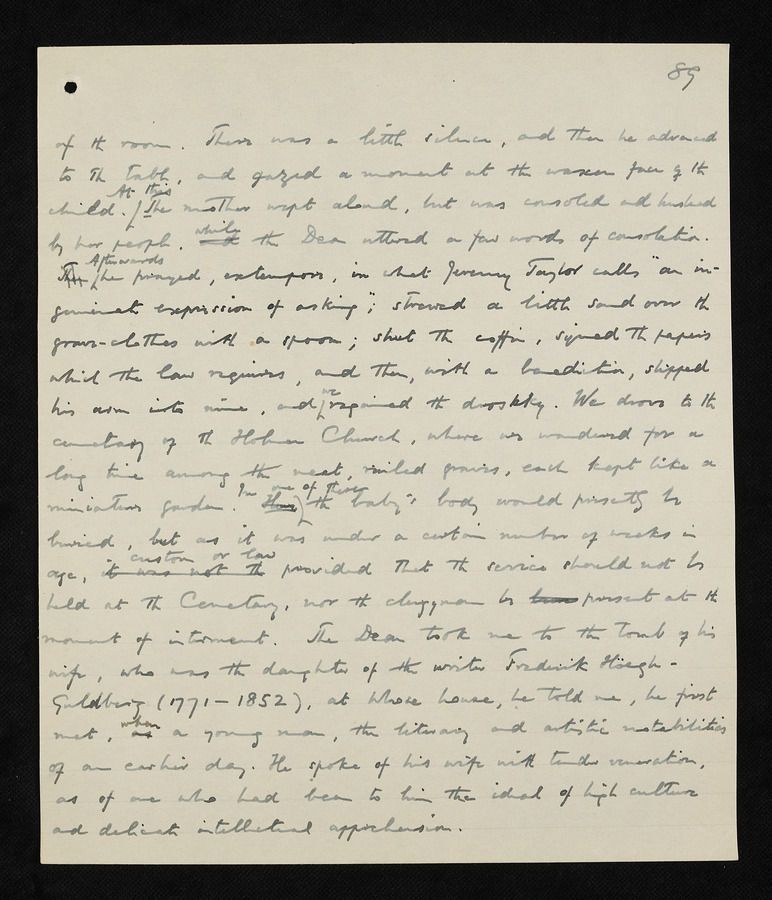 89
of the room. There was a little silence, and then he advanced
to the table, and gazed a moment at the waxen face of the
At this
child. The mother wept aloud, but was consoled and hushed
by her people, while and the Dean uttered a few words of consolation.
Afterwards
Then he prayed, extempore, in what Jeremy Taylor calls "an in-
geminate expression of asking"; strewed a little sand over the
grave-clothes with a spoon; shut the coffin, signed the papers
which the law requires, and then, with a benediction, slipped
his arm into mine, and we regained the droshky. We drove to the
cemetery of the Holmen Church, where we wandered for a
long time among the neat, railed graves, each kept like a
In one of these
miniature garden. Here the baby's body would presently be
buried, but as it was under a certain number of weeks in
custom or law
age, it was not the provided that the service should not be
held at the Cemetery, nor the clergyman be been present at the
moment of interment. The Dean took me to the tomb of his
wife, who was the daughter of the writer Frederik Höegh-
Guldberg (1771-1852), at whose house, he told me, he first
met, when as a young man, the literary and artistic notabilities
of an earlier day. He spoke of his wife with tender veneration,
as of one who had been to him the ideal of high culture
and delicate intellectual apprehension.